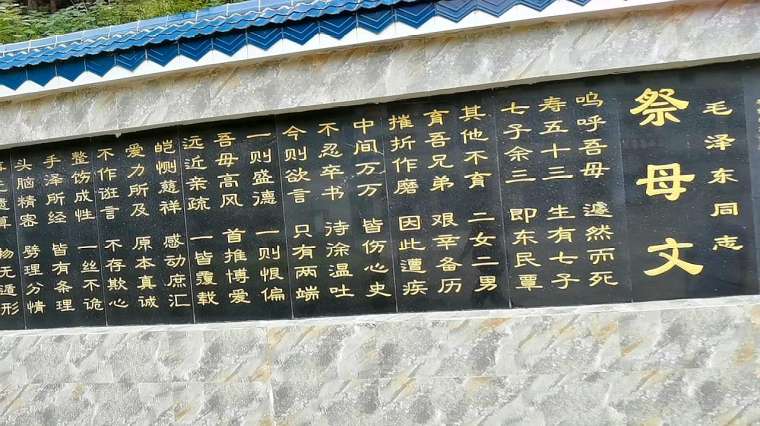 毛泽东同志
祭母文
呜呼吾母 遽然而死
寿五十三 生有七子
七子余三 即东民覃
其他不育 二女二男
育吾兄弟 艰辛备历
摧折作磨 因此遭疾
中间万万 皆伤心史
不忍卒书 待徐温吐
今则欲言 只有两端
一则盛德 一则恨偏
吾母高风 首推博爱
远近亲疏 一皆覆载
恺恻慈祥 感动庶汇
爱力所及 原本真诚
不作诳言 不存欺心
整饬成性 一丝不诡
手泽所经 皆有条理
头脑精密 劈理分情
无遗算 物无遁形